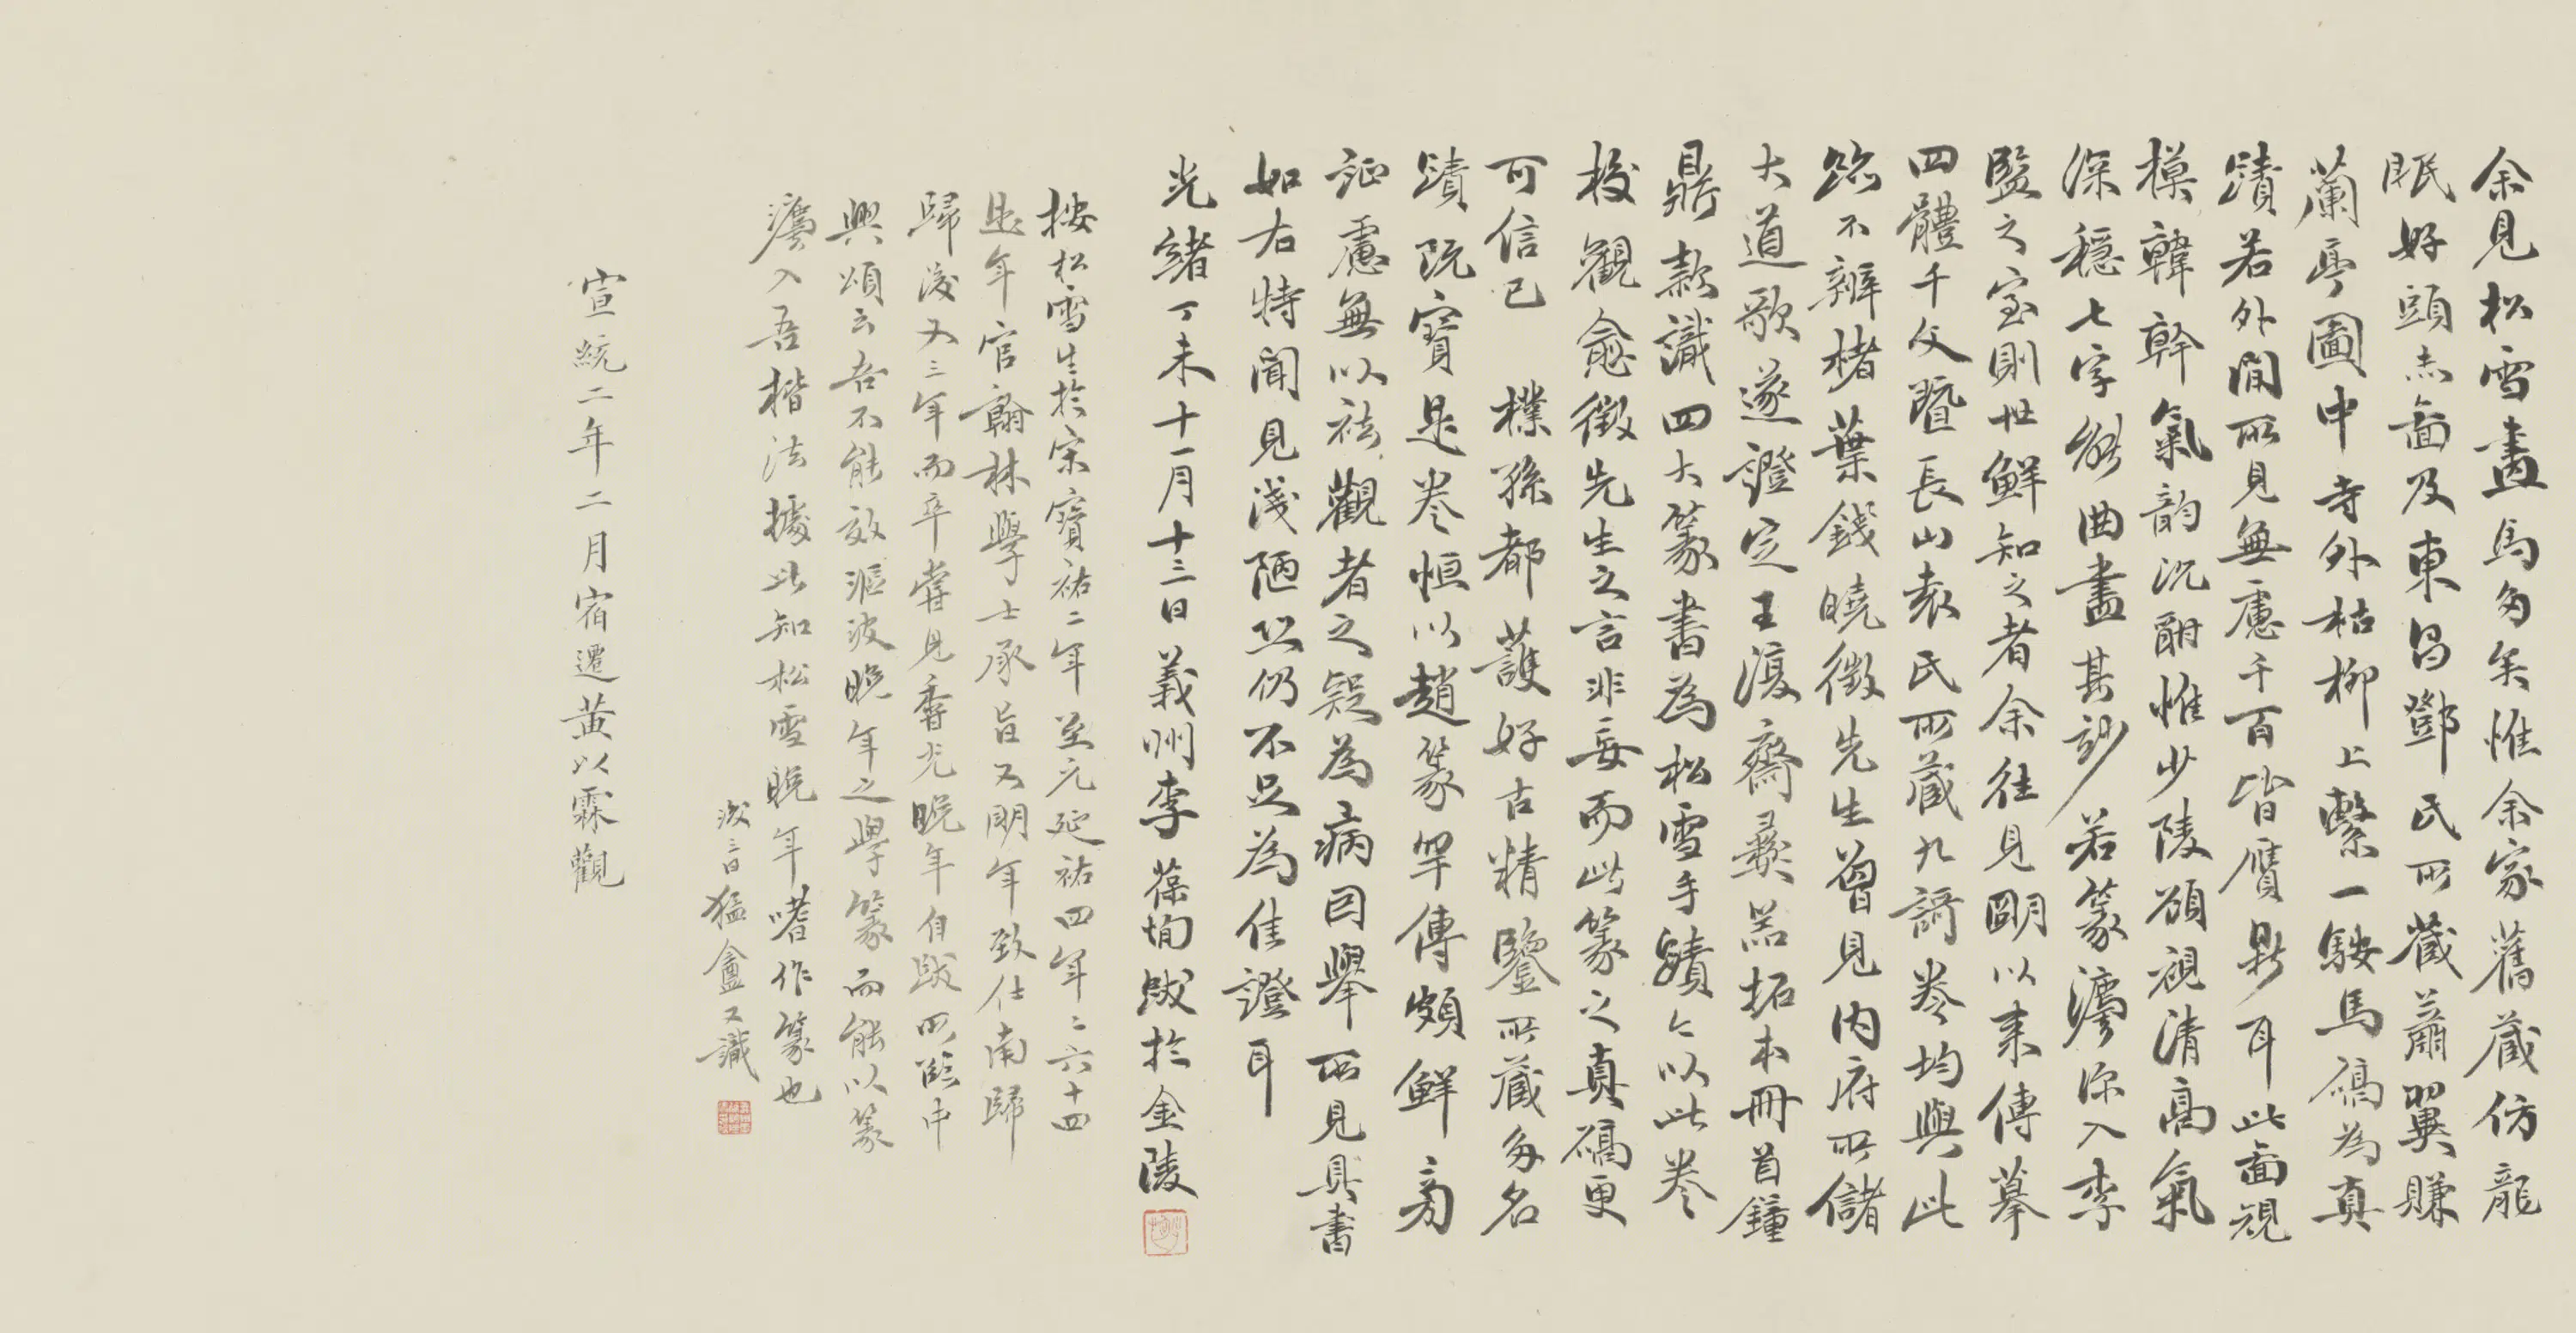 余見松雪畫馬多矣惟余家舊藏仿龍
眠好頭赤面及東昌鄧氏所藏蕭翼賺
蘭亭圖中寺外枯柳上繫一駿馬碻為真
蹟若外間所見無慮千百皆贗鼎耳此面視
模韓幹氣韵沉酣惟少陵顧視清高氣
深穩七字能曲盡其妙若篆瀋深入李
監之室則世鮮知之者余往見明以來傳摹
四體千文暨長山袁氏所藏九謌卷均與此
跡不辨楮葉錢曉徵先生曾見內府所儲
大道歌遂證定王復齋彝器拓本冊首鐘
鼎款識四大篆書為松雪手蹟今以此卷
校觀愈徵先生之言非妄而此篆之真碻更
可信已 樸孫都護好古精鑒所藏多名
蹟既寶是卷恒以趙篆罕傳頗鮮旁
証慮無以祛觀者之疑為病因舉所見具書
如右特聞見淺陋恐仍不足為佳證耳
光緒丁未十一月十三日義州李葆恂跋於金陵
按松雪生於宋寶祐二年至元延祐四年年六十四
是年官翰林學士承旨又明年致仕南歸
歸後又三年而卒嘗見香光晚年自跋所臨中
興頌云吾不能效漚波晚年之學篆而能以篆
瀋入吾楷法據此知松雪晚年嗜作篆也
跋三日猛盦又識
宣統二年二月宿遷黃以霖觀